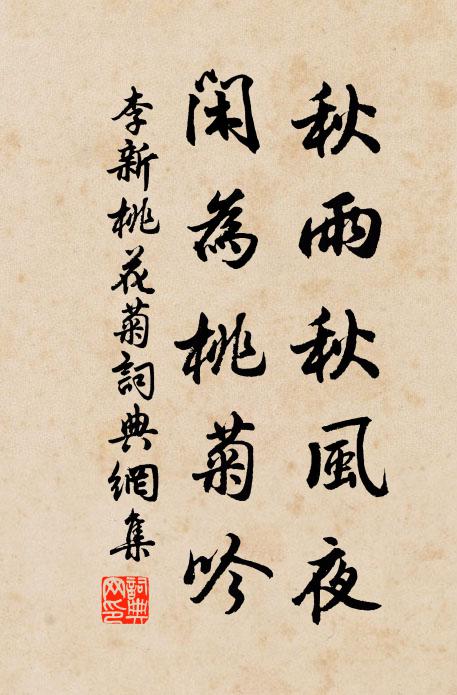 秋雨秋風夜
閑為桃菊吟
李新桃花菊詞典網集
詞典網印